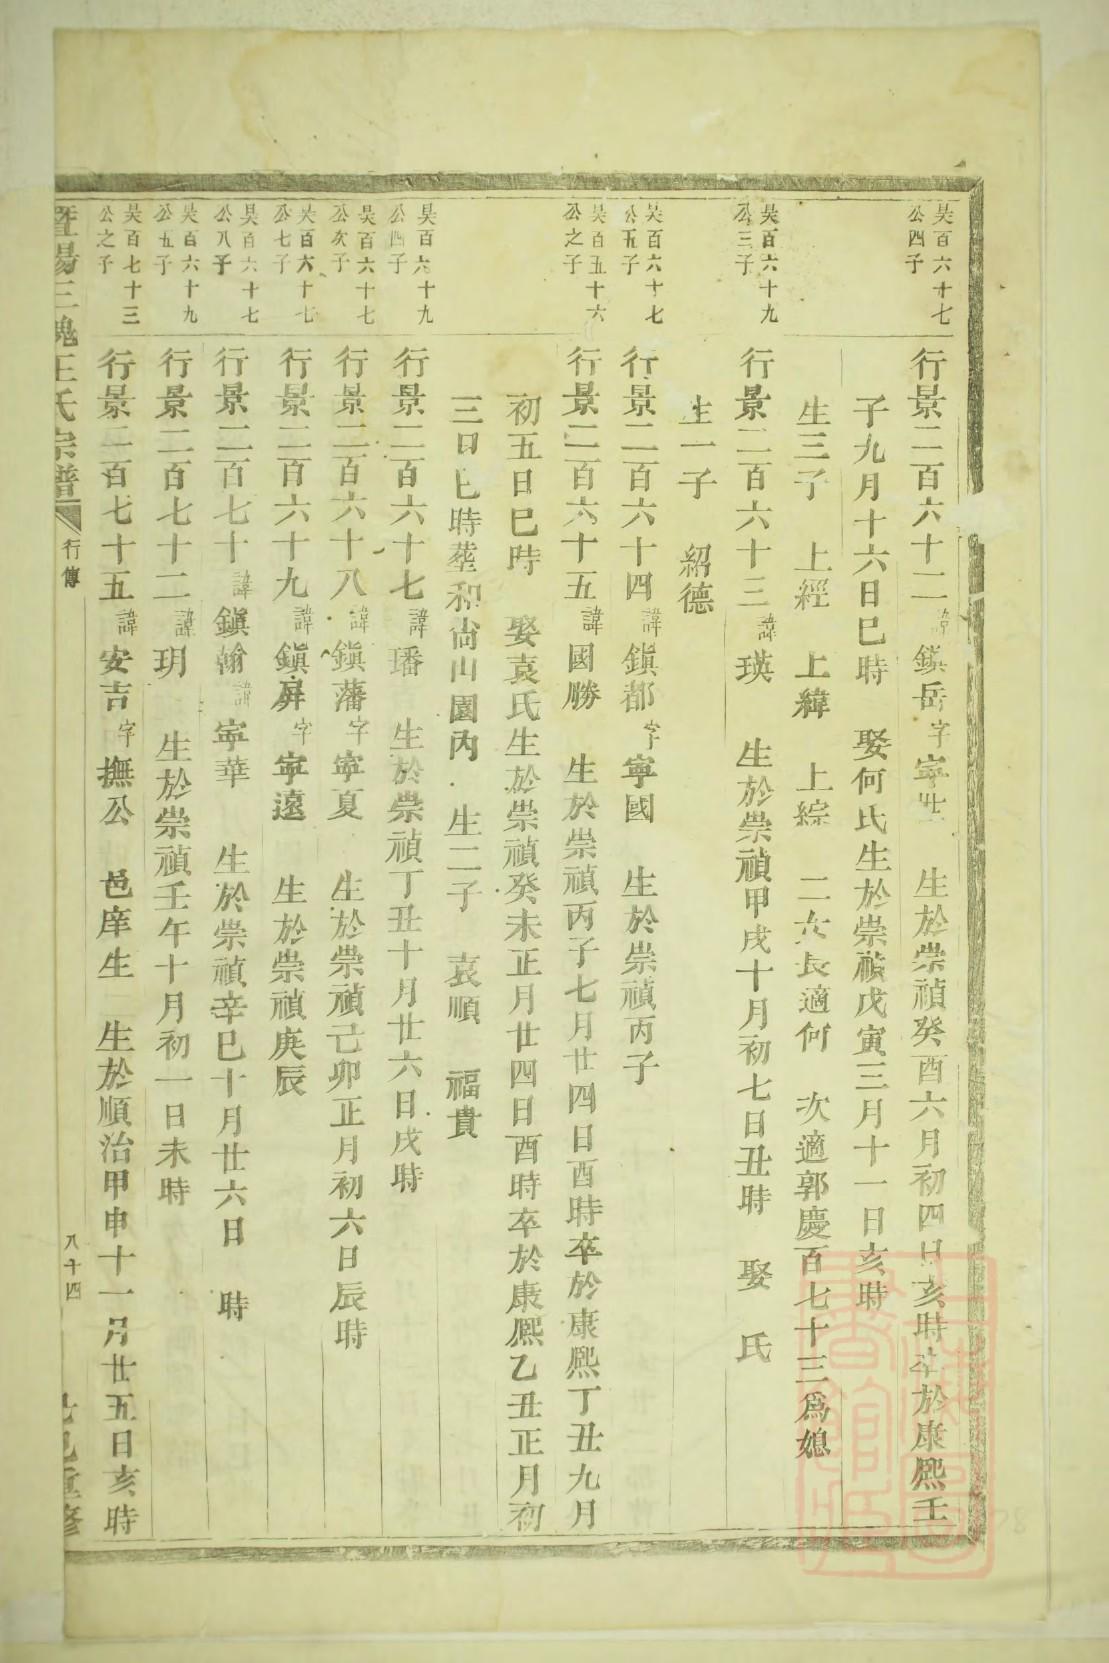 昊百六十七
公四子
行景二百六十二諱鎮岳字寧 生於崇禎癸酉六月初四日亥時卒於康熙壬
子九月十六日巳時 娶何氏生於崇禎戊寅三月十一日亥時
生三子 上經 上緯 上綜 二女長適何 次適郭慶百七十三爲媳
昊百六十九
公三子
行景二百六十三諱瑛 生於崇禎甲戌十月初七日丑時 娶 氏
生一子 紹德
昊百六十七
公五子
行景二百六十四諱鎮都字寧國 生於崇禎丙子
昊百五十六
公之子
行景二百六十五諱國勝 生於崇禎丙子七月廿四日酉時卒於康熙丁丑九月
初五日巳時 娶袁氏生於崇禎癸未正月廿四日酉時卒於康熙乙丑正月初
三日巳時塟和尙山園內 生二子 袁順 福貴
昊百六十九
公四子
行景二百六十七諱璠 生於崇禎丁丑十月廿六日戌時
昊百六十七
公次子
行景二百六十八諱鎮藩字寧夏 生於崇禎己卯正月初六日辰時
昊百六十七
公七子
行景二百六十九諱鎮屏字寧遠 生於崇禎庚辰
昊百六十七
公八子
行景二百七十諱鎮翰諱寧華 生於崇禎辛巳十月廿六日 時
昊百六十九
公五子
行景二百七十二諱玥 生於崇禎壬午十月初一日未時
昊百七十三
公之子
行景二百七十五諱安吉字撫公 邑庠生 生於順治甲申十一月廿五日亥時
暨陽三槐王氏宗譜 行傳 八十四 重修